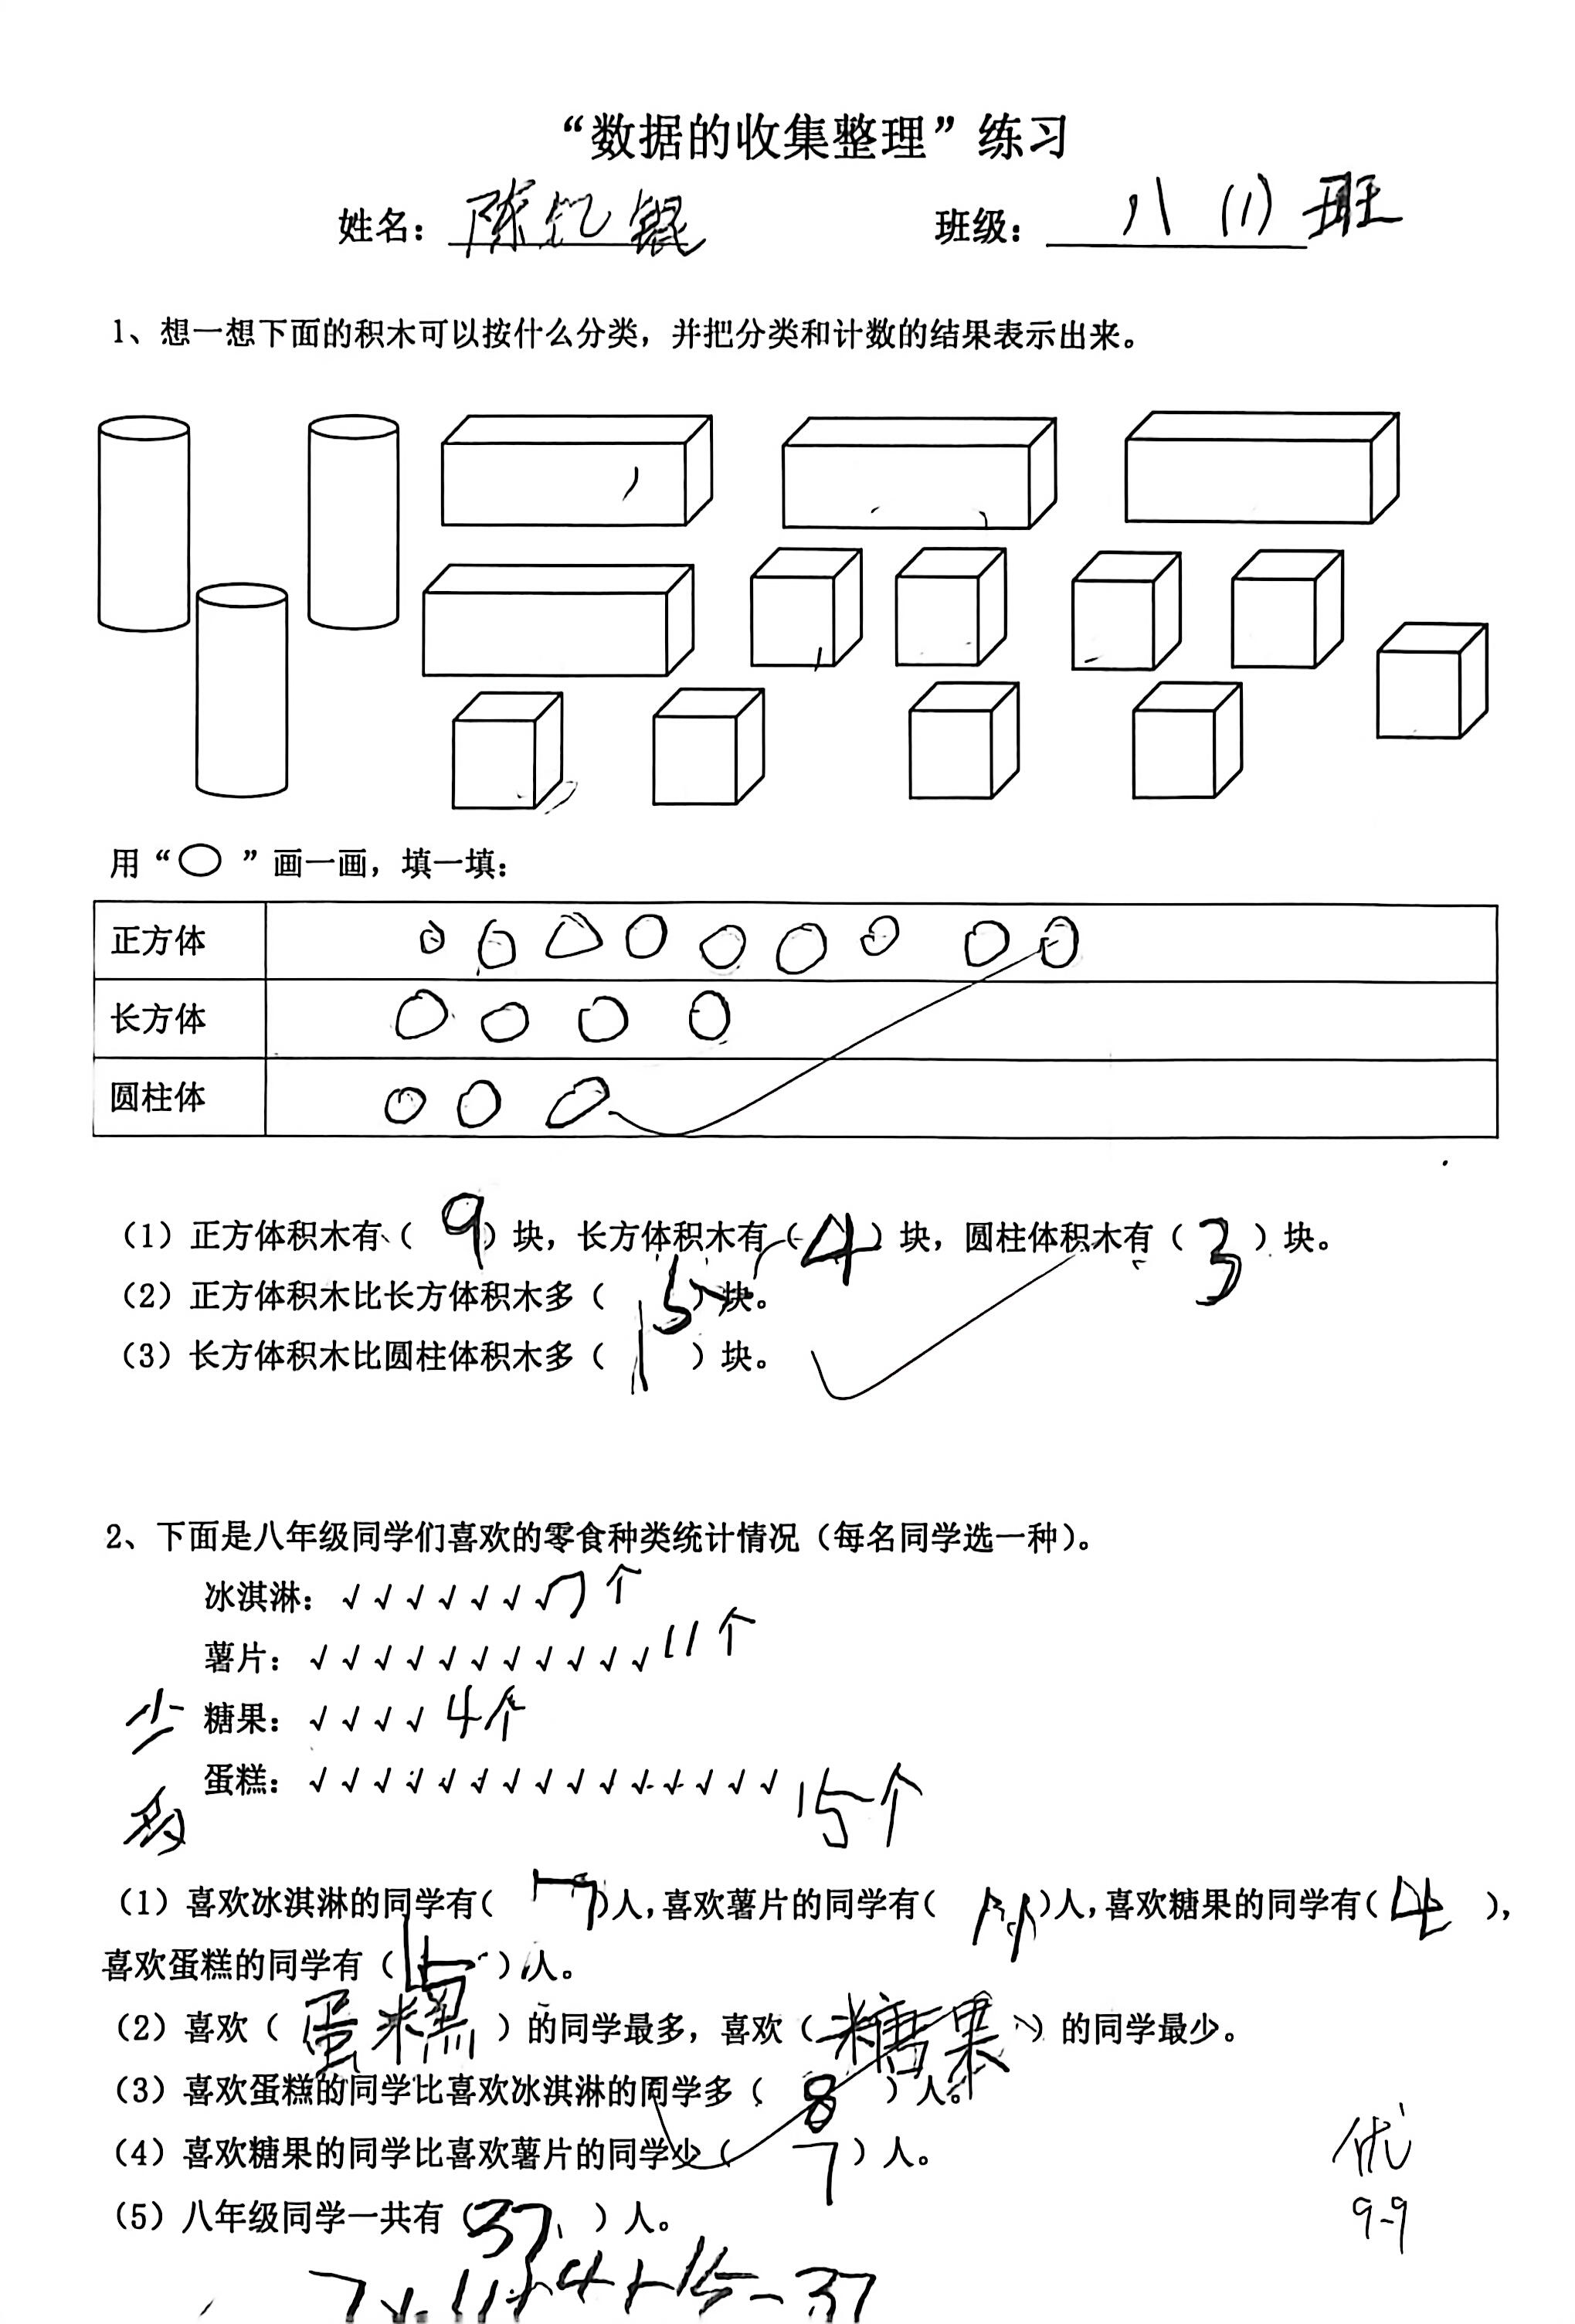 “数据的收集整理”练习
姓名：陈 班级：八（1）班
1、想一想下面的积木可以按什么分类，并把分类和计数的结果表示出来。
用“○”画一画，填一填：
正方体
长方体
圆柱体
（1）正方体积木有（9）块，长方体积木有（4）块，圆柱体积木有（3）块。
（2）正方体积木比长方体积木多（5）块。
（3）长方体积木比圆柱体积木多（1）块。
2、下面是八年级同学们喜欢的零食种类统计情况（每名同学选一种）。
冰淇淋：√ √ √ √ √ √ √ 7个
薯片：√ √ √ √ √ √ √ √ √ √ √ 11个
少 糖果：√ √ √ √ 4个
多 蛋糕：√ √ √ √ √ √ √ √ √ √ √ √ √ √ √ 15个
（1）喜欢冰淇淋的同学有（7）人，喜欢薯片的同学有（11）人，喜欢糖果的同学有（4），
喜欢蛋糕的同学有（15）人。
（2）喜欢（蛋糕）的同学最多，喜欢（糖果）的同学最少。
（3）喜欢蛋糕的同学比喜欢冰淇淋的同学多（8）人。
（4）喜欢糖果的同学比喜欢薯片的同学少（7）人。
（5）八年级同学一共有（37）人。
优
9-9
7+11+4+15=37